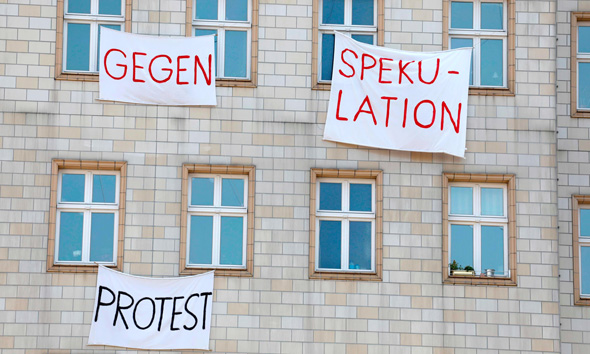 GEGEN
SPEKU-
LATION
PROTEST